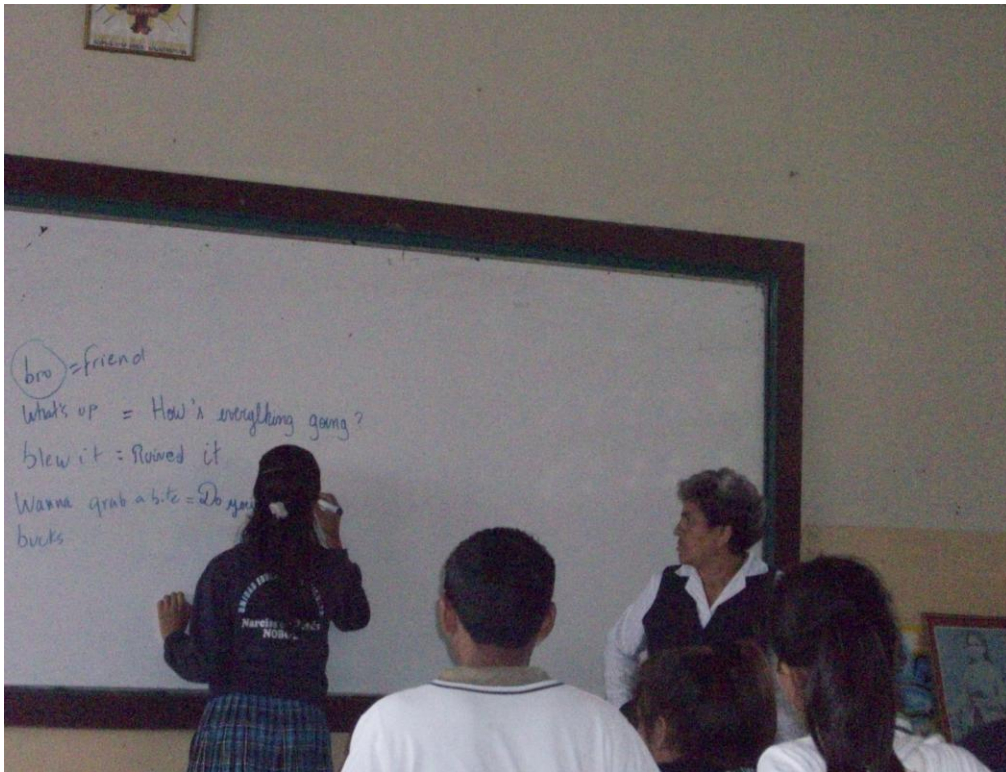 bro = friend
What's up = How's everything going?
blew it = Ruined it
Wanna grab a bite = Do you
bucks
NOBOL